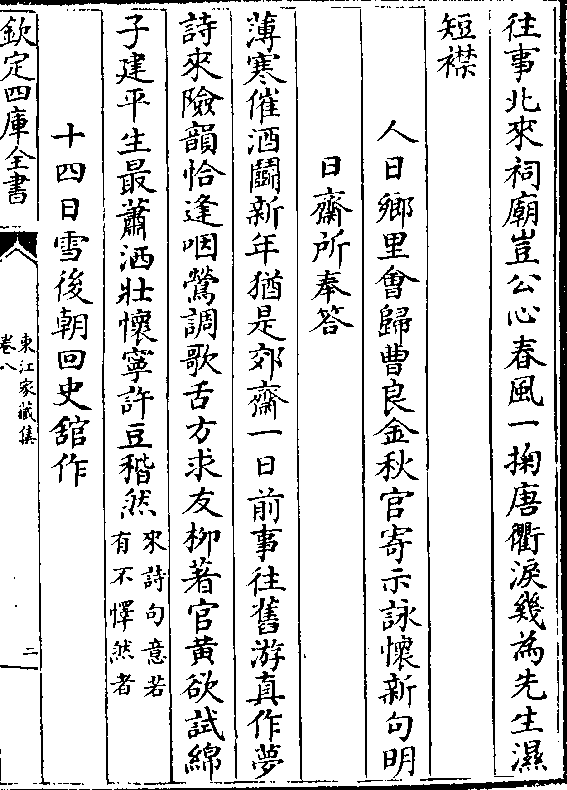 往事北來祠廟豈公心春風一掬唐衢淚幾為先生濕
短襟
人日鄉里會歸曹良金秋官寄示詠懷新句明
日齋所奉答
薄寒催酒鬭新年猶是郊齋一日前事往舊游真作夢
詩來險韻恰逢咽鶯調歌舌方求友柳著官黃欲試綿
子建平生最蕭洒壯懷寧許豆稭然
來詩句意若
有不懌然者
十四日雪後朝回史舘作
欽定四庫全書
東江家藏集
卷八
二